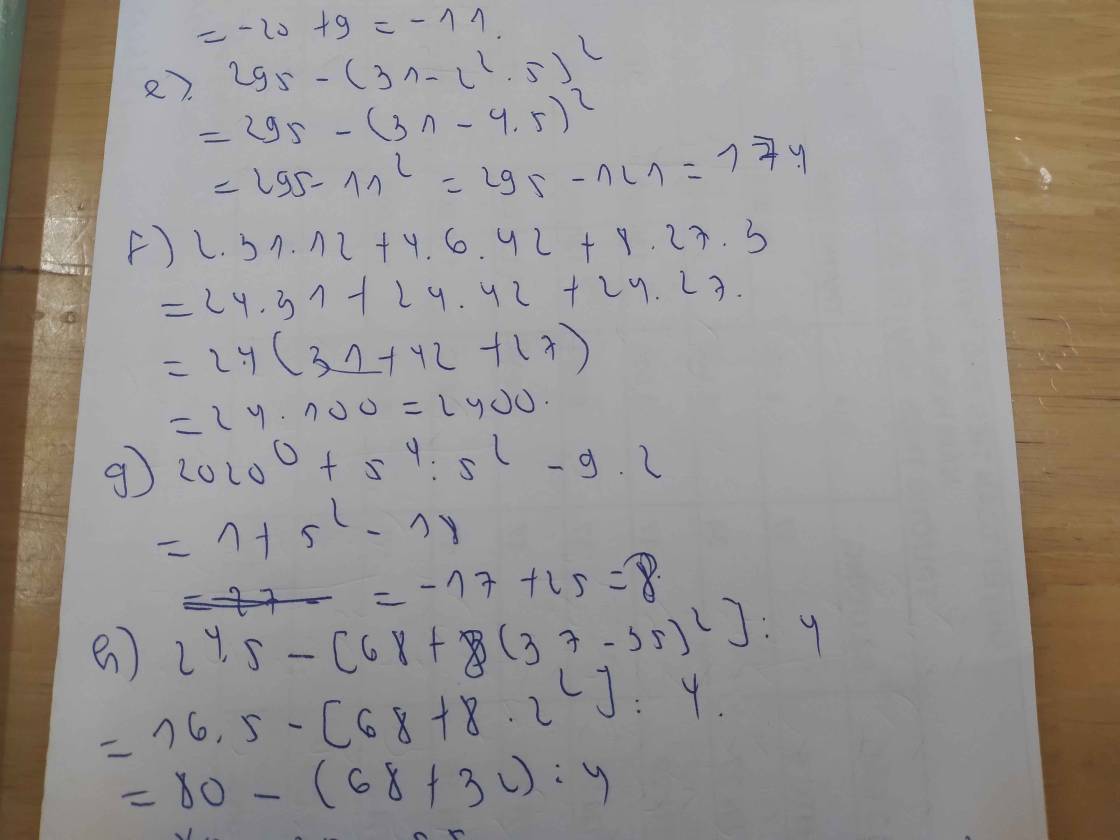 = -20 + 9 = -11.
e). 295 - (31 - 2². 5)²
= 295 - (31 - 4. 5)²
= 295 - 11² = 295 - 121 = 174
f) 2. 31. 12 + 4. 6. 42 + 8. 27. 3
= 24. 31 + 24. 42 + 24. 27.
= 24 (31 + 42 + 27)
= 24. 100 = 2400.
g) 2020⁰ + 5⁴ : 5² - 9. 2
= 1 + 5² - 18
= 27 - = -17 + 25 = 8.
h) 2⁴. 5 - [68 + 8 (37 - 35)²] : 4
= 16. 5 - [68 + 8. 2²] : 4.
= 80 - (68 + 32) : 4